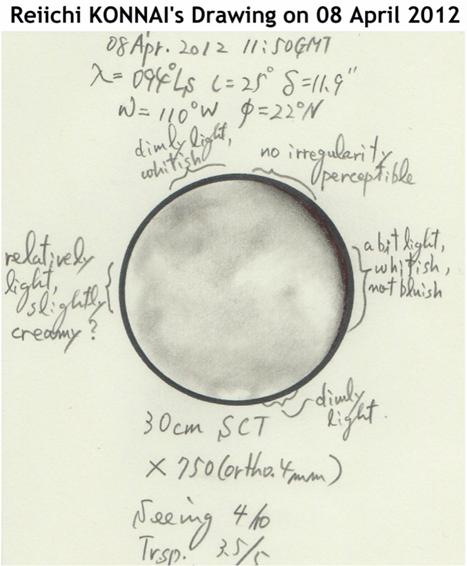 Reiichi KONNAI's Drawing on 08 April 2012
08 Apr. 2012 11:50GMT
λ= 094°Ls ι=25° δ=11.9"
ω=110°W φ=22°N
dimly light,
whitish
no irregularity
perceptible
relatively
light,
slightly
creamy?
a bit light,
whitish,
not bluish
dimly
light.
30cm SCT
× 750 (ortho.4mm)
Seeing 4/10
Trsp. 3.5/5